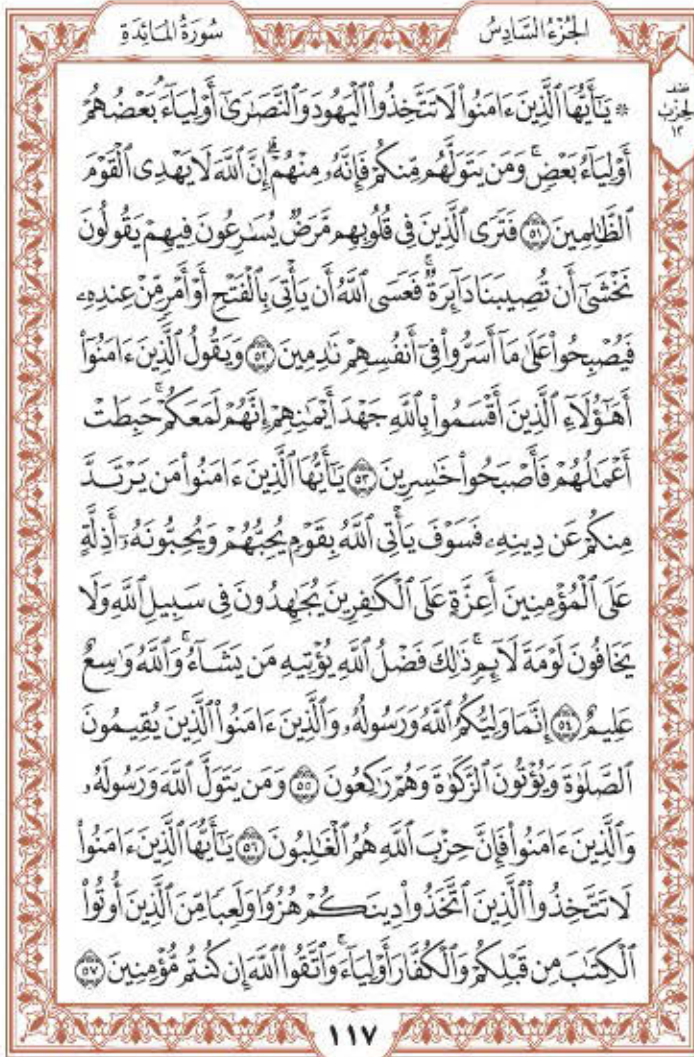 سُورَةُ المَائِدَةِ
الجُزْءُ السَّادِسُ
نصف
الحزب
١٢
۞ يَـٰٓأَيُّهَا ٱلَّذِينَ ءَامَنُوا۟ لَا تَتَّخِذُوا۟ ٱلْيَهُودَ وَٱلنَّصَـٰرَىٰٓ أَوْلِيَآءَ ۘ بَعْضُهُمْ
أَوْلِيَآءُ بَعْضٍ ۚ وَمَن يَتَوَلَّهُم مِّنكُمْ فَإِنَّهُۥ مِنْهُمْ ۗ إِنَّ ٱللَّهَ لَا يَهْدِى ٱلْقَوْمَ
ٱلظَّـٰلِمِينَ ٥١ فَتَرَى ٱلَّذِينَ فِى قُلُوبِهِم مَّرَضٌ يُسَـٰرِعُونَ فِيهِمْ يَقُولُونَ
نَخْشَىٰٓ أَن تُصِيبَنَا دَآئِرَةٌ ۚ فَعَسَى ٱللَّهُ أَن يَأْتِىَ بِٱلْفَتْحِ أَوْ أَمْرٍ مِّنْ عِندِهِۦ
فَيُصْبِحُوا۟ عَلَىٰ مَآ أَسَرُّوا۟ فِىٓ أَنفُسِهِمْ نَـٰدِمِينَ ٥٢ وَيَقُولُ ٱلَّذِينَ ءَامَنُوٓا۟
أَهَـٰٓؤُلَآءِ ٱلَّذِينَ أَقْسَمُوا۟ بِٱللَّهِ جَهْدَ أَيْمَـٰنِهِمْ ۙ إِنَّهُمْ لَمَعَكُمْ ۚ حَبِطَتْ
أَعْمَـٰلُهُمْ فَأَصْبَحُوا۟ خَـٰسِرِينَ ٥٣ يَـٰٓأَيُّهَا ٱلَّذِينَ ءَامَنُوا۟ مَن يَرْتَدَّ
مِنكُمْ عَن دِينِهِۦ فَسَوْفَ يَأْتِى ٱللَّهُ بِقَوْمٍ يُحِبُّهُمْ وَيُحِبُّونَهُۥٓ أَذِلَّةٍ
عَلَى ٱلْمُؤْمِنِينَ أَعِزَّةٍ عَلَى ٱلْكَـٰفِرِينَ يُجَـٰهِدُونَ فِى سَبِيلِ ٱللَّهِ وَلَا
يَخَافُونَ لَوْمَةَ لَآئِمٍ ۚ ذَٰلِكَ فَضْلُ ٱللَّهِ يُؤْتِيهِ مَن يَشَآءُ ۚ وَٱللَّهُ وَٰسِعٌ
عَلِيمٌ ٥٤ إِنَّمَا وَلِيُّكُمُ ٱللَّهُ وَرَسُولُهُۥ وَٱلَّذِينَ ءَامَنُوا۟ ٱلَّذِينَ يُقِيمُونَ
ٱلصَّلَوٰةَ وَيُؤْتُونَ ٱلزَّكَوٰةَ وَهُمْ رَٰكِعُونَ ٥٥ وَمَن يَتَوَلَّ ٱللَّهَ وَرَسُولَهُۥ
وَٱلَّذِينَ ءَامَنُوا۟ فَإِنَّ حِزْبَ ٱللَّهِ هُمُ ٱلْغَـٰلِبُونَ ٥٦ يَـٰٓأَيُّهَا ٱلَّذِينَ ءَامَنُوا۟
لَا تَتَّخِذُوا۟ ٱلَّذِينَ ٱتَّخَذُوا۟ دِينَكُمْ هُزُوًا وَلَعِبًا مِّنَ ٱلَّذِينَ أُوتُوا۟
ٱلْكِتَـٰبَ مِن قَبْلِكُمْ وَٱلْكُفَّارَ أَوْلِيَآءَ ۚ وَٱتَّقُوا۟ ٱللَّهَ إِن كُنتُم مُّؤْمِنِينَ ٥٧
١١٧